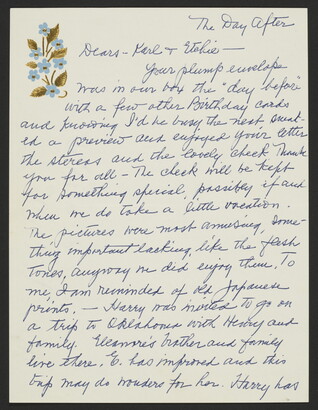 The Day After
Dears - Karl & Elsbie -
Your plump envelope
was in our box the "day before"
with a few other Birthday cards
and knowing I'd be busy the next sneak-
ed a preview and enjoyed your letter
the stereos and the lovely check Thank
you for all - The check will be kept
for something special, possibly if and
when we do take a little vacation.
The pictures were most amusing, some-
thing important lacking, like the flesh
tones, anyway we did enjoy them. To
me, I am reminded of old Japanese
prints. - Harry was invited to go on
a trip to Oklahoma with Henry and
family. Eleanore's brother and family
live there. E. has improved and this
trip may do wonders for her. Harry has